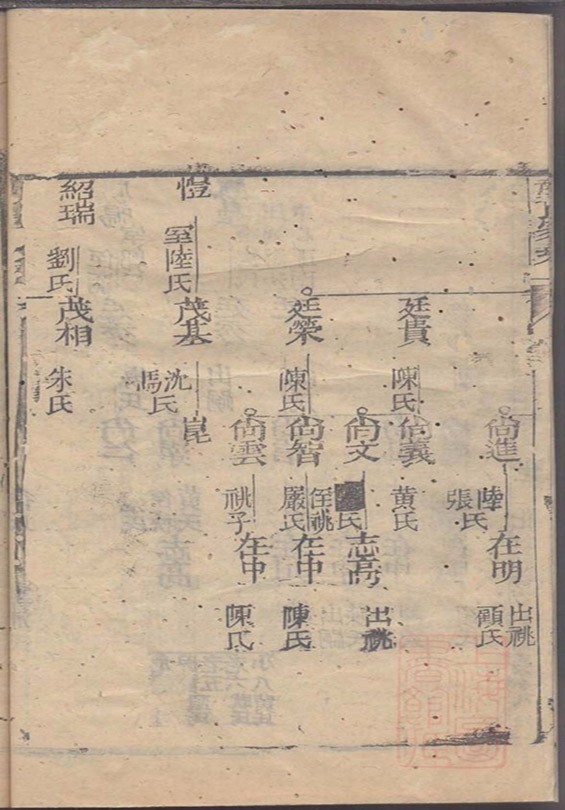 尙進
陸氏
張氏
在明
出祧
顧氏
廷貴
陳氏
尙義
黃氏
尙文
氏
志高
出祧
廷榮
陳氏
尙智
嚴氏
侄祧
在中
陳氏
尙雲
祧子
在中
陳氏
愷
室陸氏
茂基
沈氏
馮氏
崑
紹瑞
劉氏
茂相
朱氏